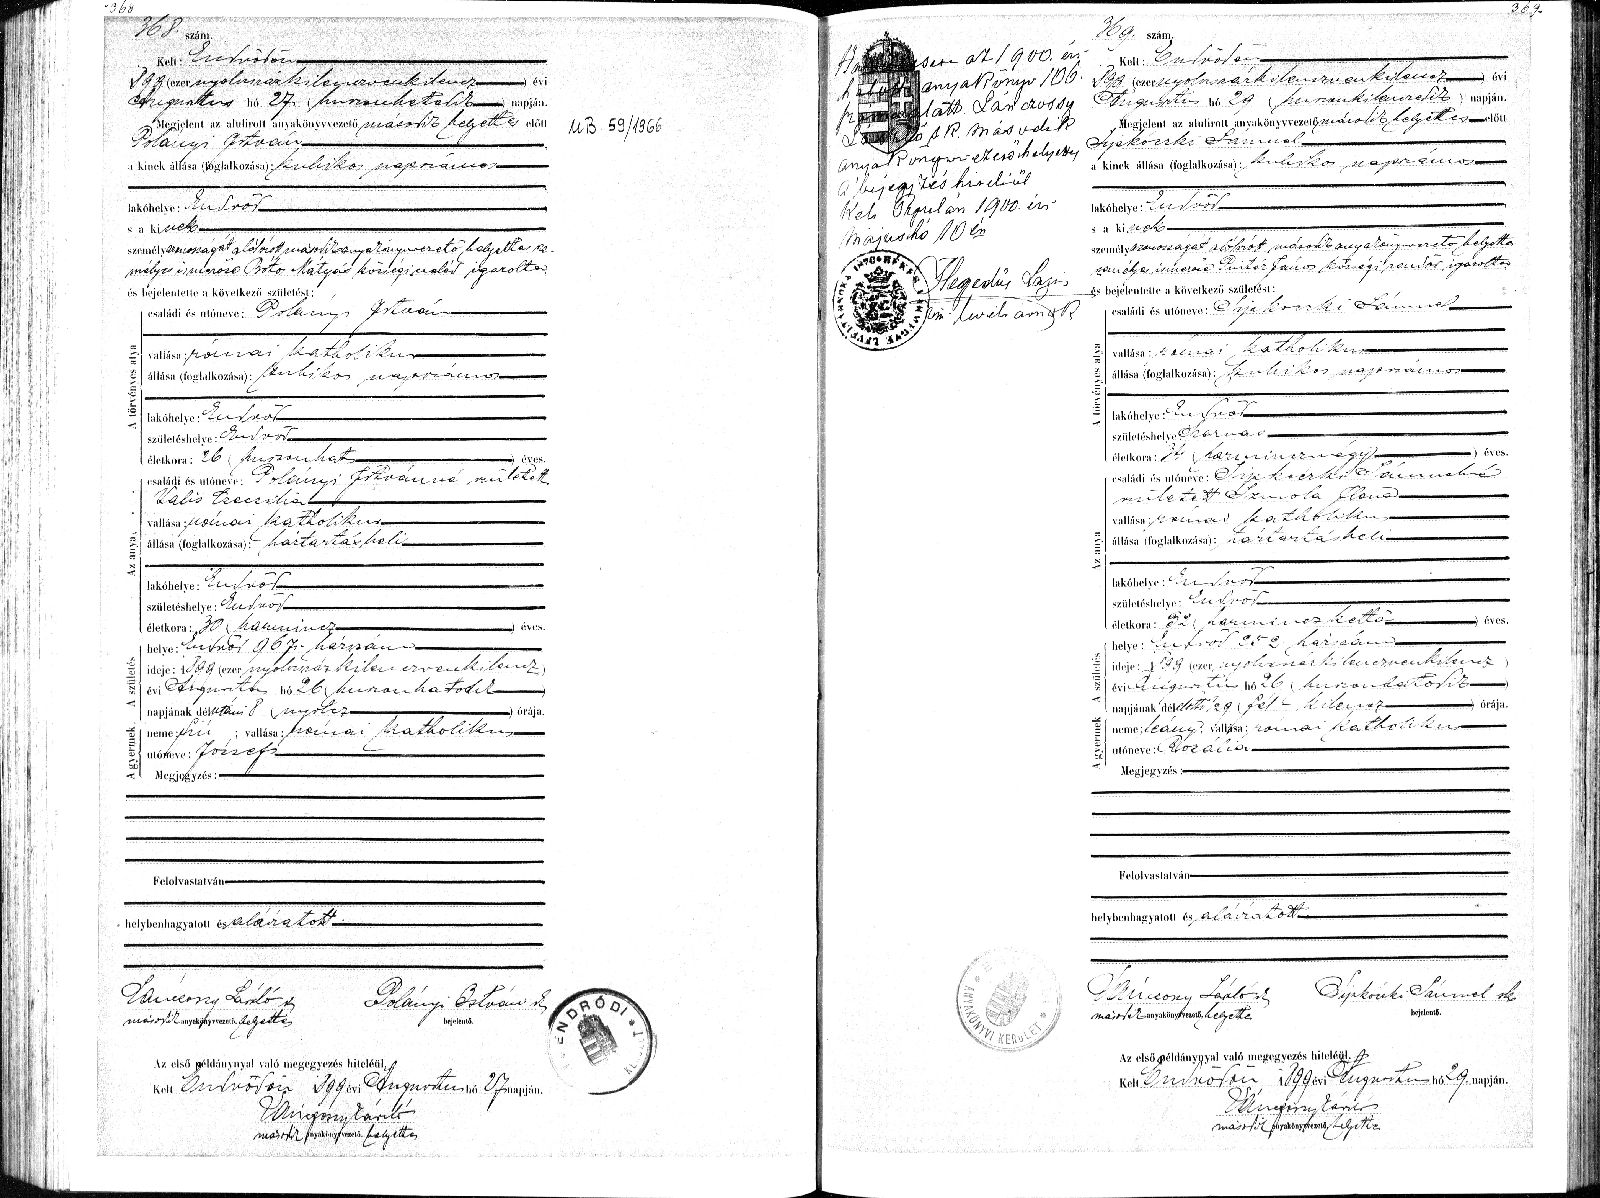 368
368. szám.
Kelt: Endrődön
1899 (ezernyolczszázkilenczvenkilencz) évi
Augustus hó 27 (huszonhetedik) napján.
Megjelent az alulirott anyakönyvvezető második helyettes előtt
Polányi István
a kinek állása (foglalkozása): kubikos napszámos
lakóhelye: Endrőd
s a kinek
személyazonosságát alólírott második anyakönyvvezető helyettes sze-
mélyes ismerőse Mátyás községi igazolta
és bejelentette a következő születést:
A törvényes atya
családi és utóneve: Polányi István
vallása: római katholikus
állása (foglalkozása): kubikos napszámos
lakóhelye: Endrőd
születéshelye: Endrőd
életkora: 26 (huszonhat) éves.
Az anya
családi és utóneve: Polányi Istvánné született
Valis Czeczilia
vallása: római katholikus
állása (foglalkozása): háztartásbeli
lakóhelye: Endrőd
születéshelye: Endrőd
életkora: 30 (harmincz) éves.
A születés
helye: Endrőd 967. házszám
ideje: 1899 (ezernyolczszázkilenczvenkilencz)
évi Augustus hó 26 (huszonhatodik)
napjának délutáni 8 (nyolcz) órája.
A gyermek
neme: fiú; vallása: római katholikus
utóneve: József
Megjegyzés:
Felolvastatván
helybenhagyatott és aláíratott
Lánczosy László Polányi István
második anyakönyvvezető helyettes bejelentő.
ENDRŐDI
Az első példánynyal való megegyezés hiteléül.
Kelt Endrődön 1899 évi Augustus hó 27 napján.
Lánczosy László
második anyakönyvvezető helyettes
MB 59/1966
az 1900. évi
halotti anyakönyv 106.
alatt Lánczossy
László s.k. második
anyakönyvvezető helyettes
a bejegyzés hiteléül
Kelt Gyulán 1900. évi
május hó 10 én
Hegedűs
levéltárnok
369.
369. szám.
Kelt: Endrődön
1899 (ezernyolczszázkilenczvenkilencz) évi
Augustus hó 29 (huszonkilenczedik) napján.
Megjelent az alulirott anyakönyvvezető második helyettes előtt
Sipkovszki Sámuel
a kinek állása (foglalkozása): kubikos napszámos
lakóhelye: Endrőd
s a kinek
személyazonosságát alólírott második anyakönyvvezető helyettes
személyes ismerőse Pintér János községi rendőr igazolta
és bejelentette a következő születést:
A törvényes atya
családi és utóneve: Sipkovszki Sámuel
vallása: római katholikus
állása (foglalkozása): kubikos napszámos
lakóhelye: Endrőd
születéshelye: Szarvas
életkora: 34 (harmincznégy) éves.
Az anya
családi és utóneve: Sipkovszki Sámuelné
született Szmola Ilona
vallása: római katholikus
állása (foglalkozása): háztartásbeli
lakóhelye: Endrőd
születéshelye: Endrőd
életkora: 32 (harminczkettő) éves.
A születés
helye: Endrőd 252 házszám
ideje: 1899 (ezernyolczszázkilenczvenkilencz)
évi Augustus hó 26 (huszonhatodik)
napjának délelőtti (fél kilencz) órája.
A gyermek
neme: leány; vallása: római katholikus
utóneve: Rozália
Megjegyzés:
Felolvastatván
helybenhagyatott és aláíratott
Lánczosy László Sipkovszki Sámuel
második anyakönyvvezető helyettes bejelentő.
ANYAKÖNYVI KERÜLET
Az első példánynyal való megegyezés hiteléül.
Kelt Endrődön 1899 évi Augustus hó 29. napján.
Lánczosy László
második anyakönyvvezető helyettes